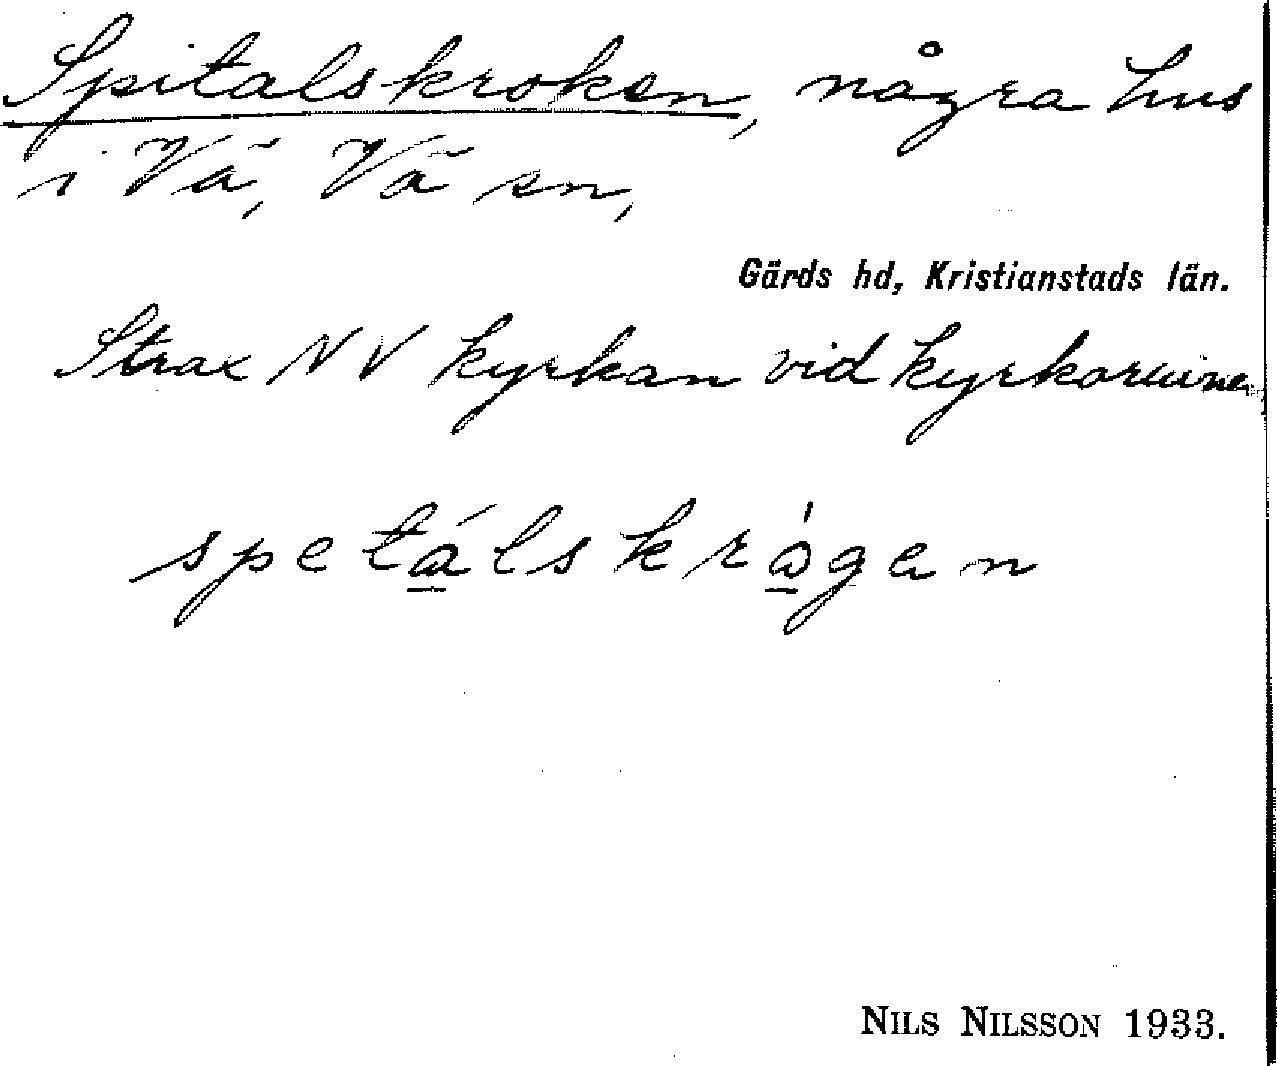 Spitalskroken, några hus
i Vä, Vä sn,
Gärds hd, Kristianstads län.
Strax NV kyrkan vid kyrkoruinen
spetálskrågen
NILS NILSSON 1933.